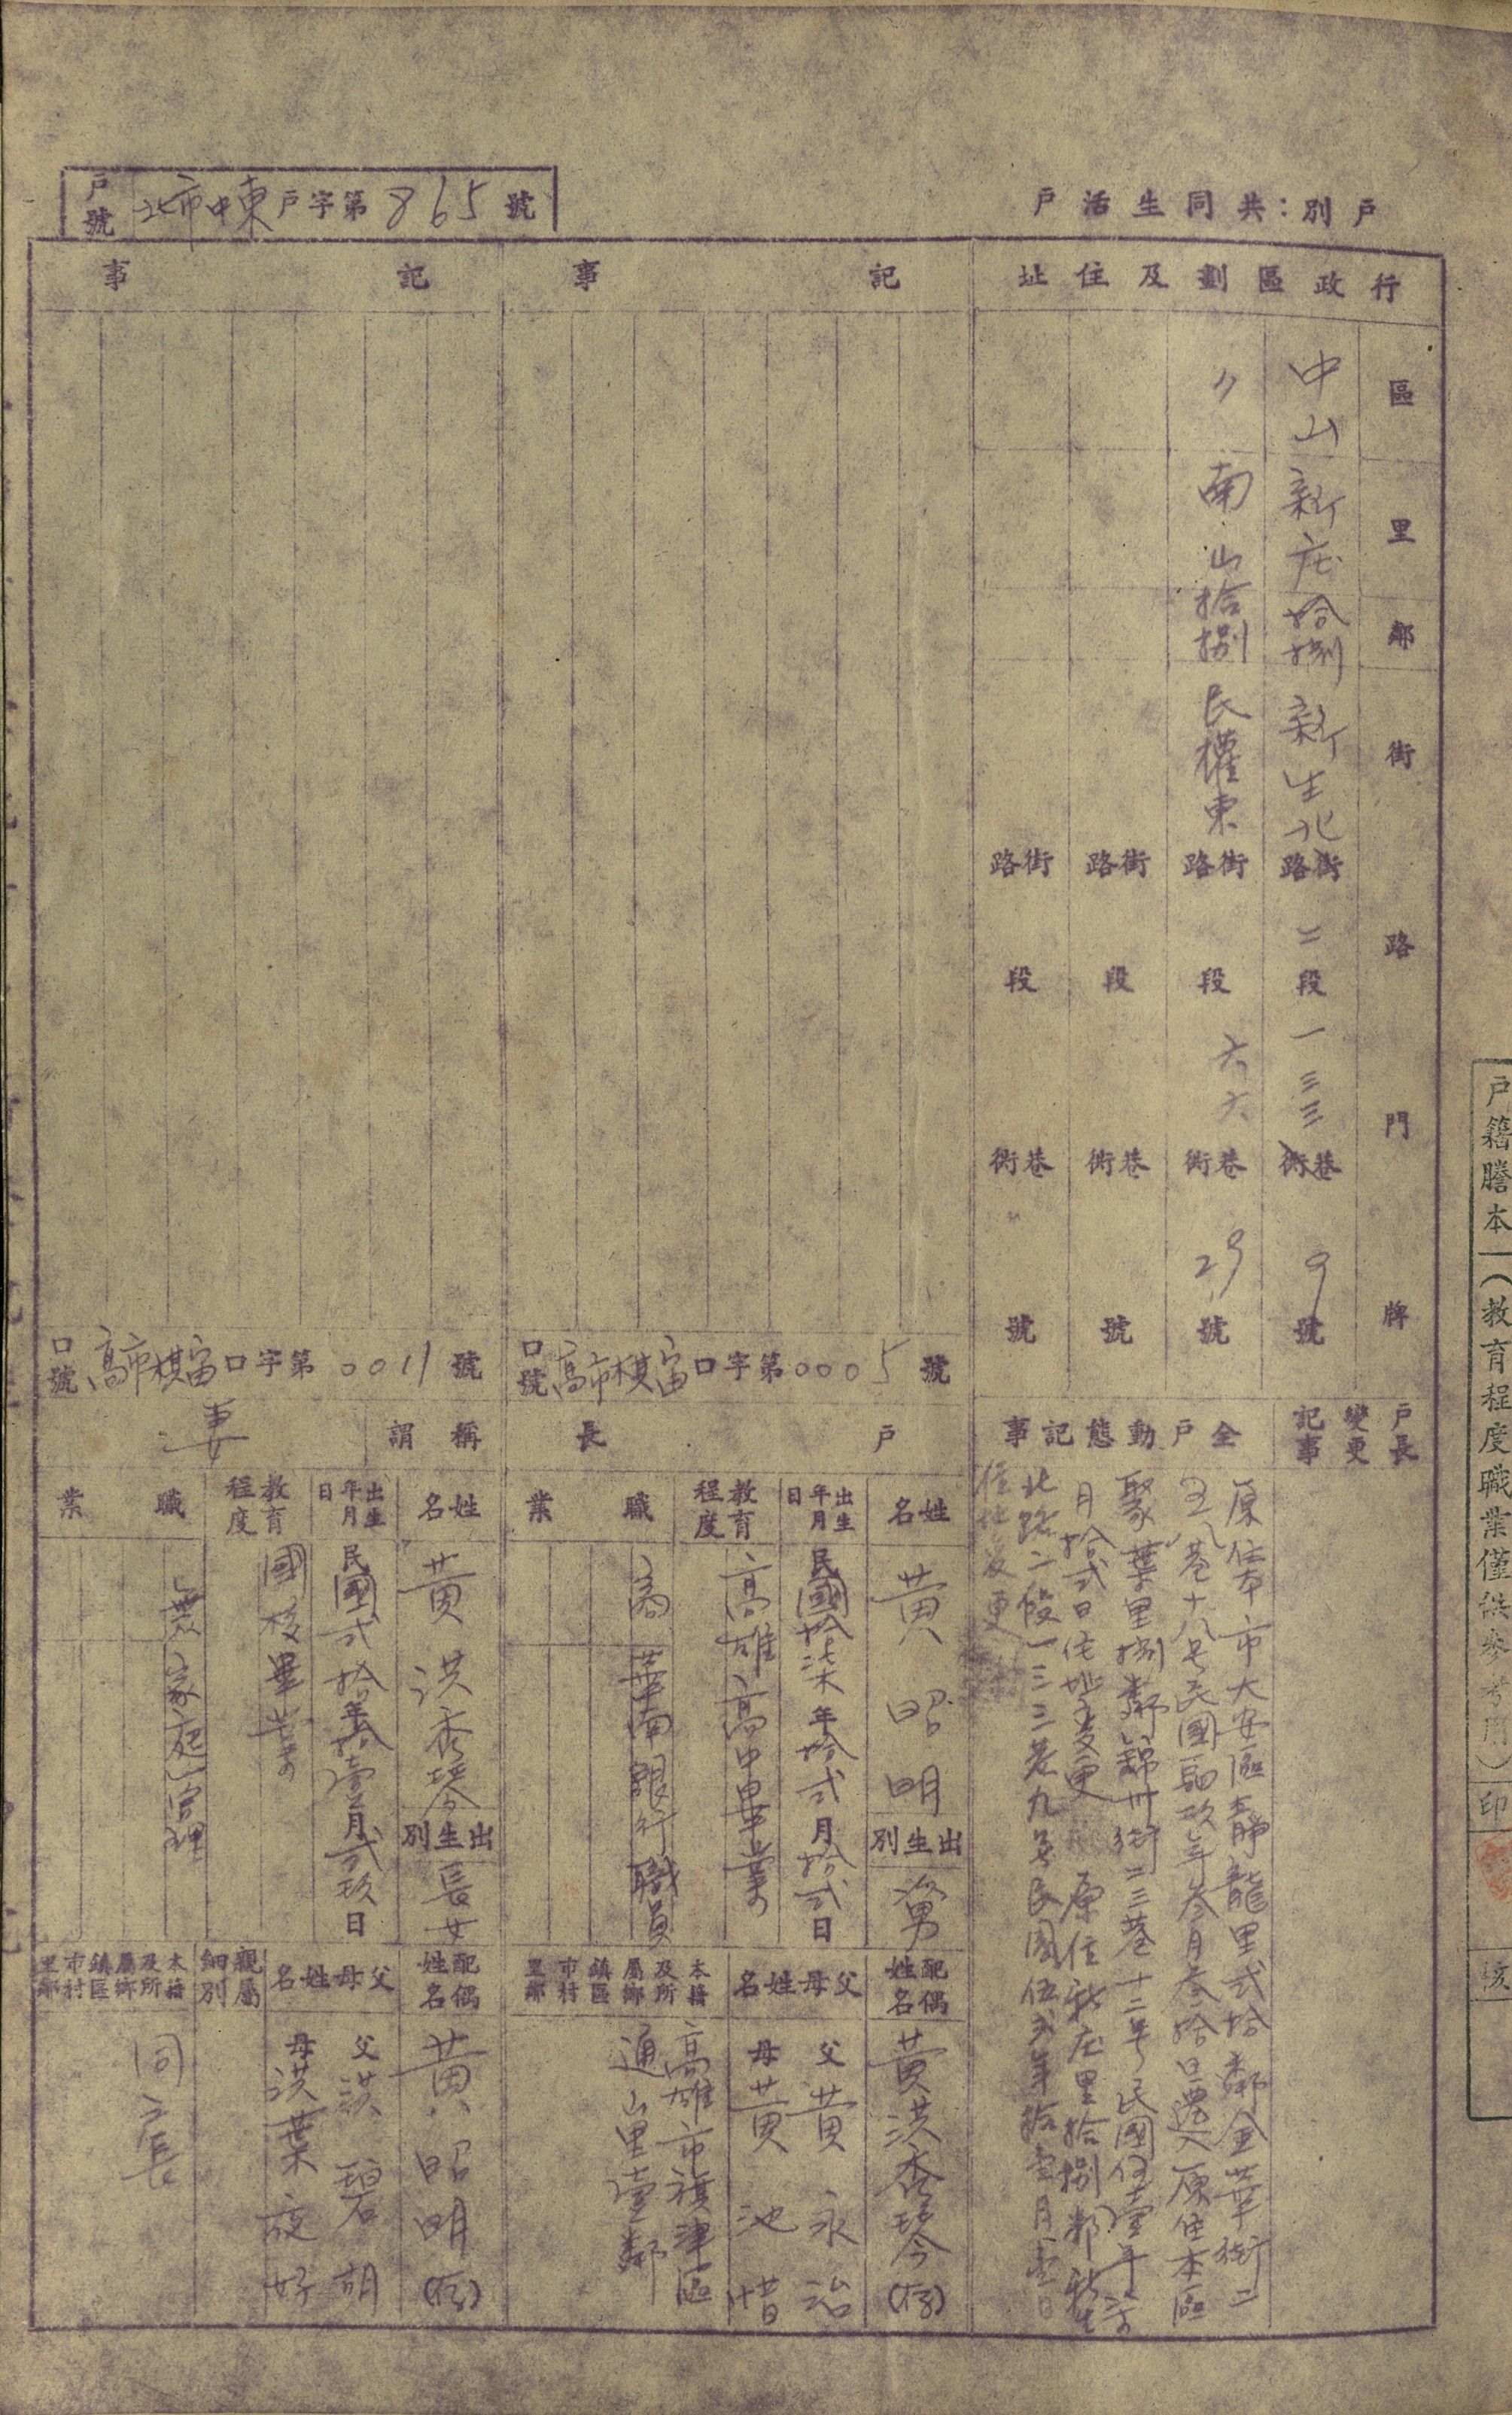 戶別：共同生活戶
戶號 北市中東戶字第865號
行政區劃及住址
區 里 鄰 街 路 門 牌
中山 新庄 拾捌 新生北路街 二段 一三三巷衖 9號
〃 南山 拾捌 民權東路街 段 六六巷衖 29號
路街 段 巷衖 號
路街 段 巷衖 號
戶長變更記事
全戶動態記事
原住本市大安區靜龍里弍拾鄰金華街二
五八巷十八号民國肆玖年叁月叁拾日遷入原住本區
聚葉里捌鄰錦州街二三巷十二号民國伍壹年
月拾弍日住址变更 原住新庄里拾捌鄰新生
北路二段一三三巷九号民國伍弍年拾壹月壹日
住址变更
記事
口號 高市棋富口字第0005號
戶長
姓名 黃昭明
出生別 男
出生年月日 民國拾柒年拾弍月拾弍日
教育程度 高雄高中畢業
職業 商 華南銀行職員
配偶姓名 黃洪秀琴(存)
父母姓名 父 黃永治
母 黃池惜
本籍及所屬鄉鎮區市村里鄰
高雄市旗津區
通山里壹鄰
記事
口號 高市棋富口字第0011號
稱謂 妻
姓名 黃洪秀琴
出生別 長女
出生年月日 民國弍拾年拾壹月弍玖日
教育程度 國校畢業
職業 無 家庭管理
配偶姓名 黃昭明(存)
父母姓名 父 洪碧胡
母 洪葉
親屬細別
本籍及所屬鄉鎮區市村里鄰
同戶長
戶籍謄本（教育程度職業僅供參考用）印